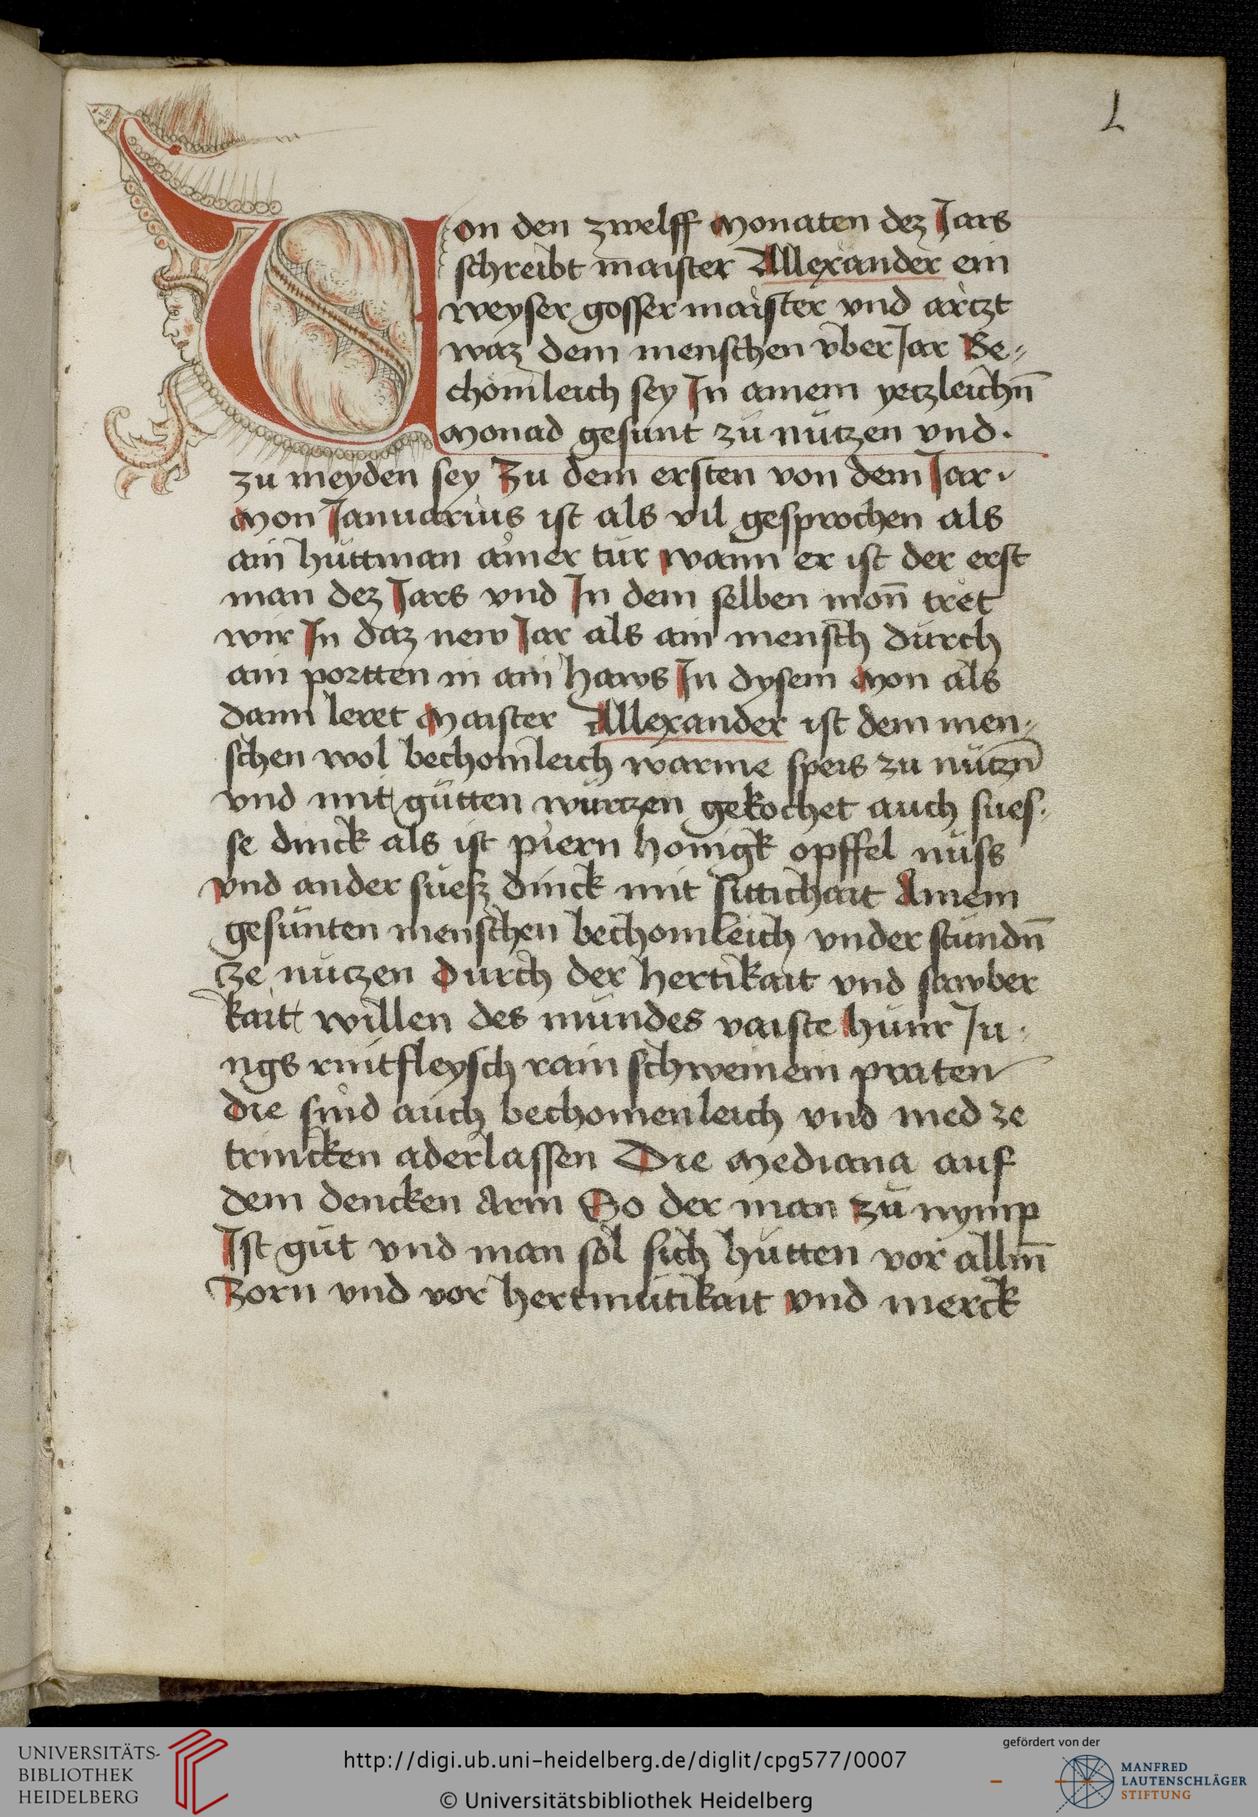 1
Von den zwelff Monaten dez Jars
schreibt maister Allexander ein
weyser gosser maister vnd artzt
waz dem menschen vber Jar Be=
chömleich sey Jn ainem yetzleichn̄
Monad gesunt zu nützen vnd.
zu meyden sey Zu dem ersten von dem Jar.
Mon Januarius ist als vil gesprochen als
ain hüttman ainer tür wann er ist der erst
man dez Jars vnd Jn dem selben mon̄ tret
wir Jn daz new Jar als ain mensch durch
ain portten in ain haws Jn dysem Mon als
dann leret Maister Allexander ist dem men=
schen wol bechomleich warme speis zu nützn̄
vnd mit gütten würtzen gekochet auch sues.
se dinck als ist piern honigk opffel nüss
vnd ander süesz dinck mit sittichait Ainem
gesunten menschen bechomleich vnder stundn̄
tze nutzen durch der hertikait vnd sawber
kait willen des mundes vaiste hünr Ju.
ngs rintfleysch rain schweinein praten
die sind auch bechomenleich vnd med ze
trincken aderlassen Die Mediana auf
dem dencken Arm So der man zü nymp
Jst güt vnd man sol sich hütten vor allm̄
Zorn vnd vor hertmütikait vnd merck
UNIVERSITÄTS-
BIBLIOTHEK
HEIDELBERG
http://digi.ub.uni-heidelberg.de/diglit/cpg577/0007
© Universitätsbibliothek Heidelberg
gefördert von der
MANFRED
LAUTENSCHLÄGER
STIFTUNG